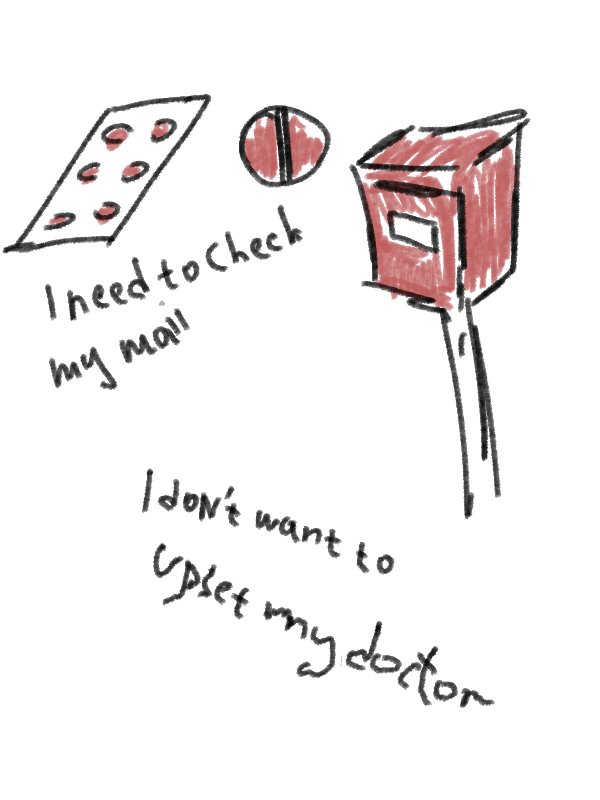 I need to check
my mail
I don't want to
upset my doctor